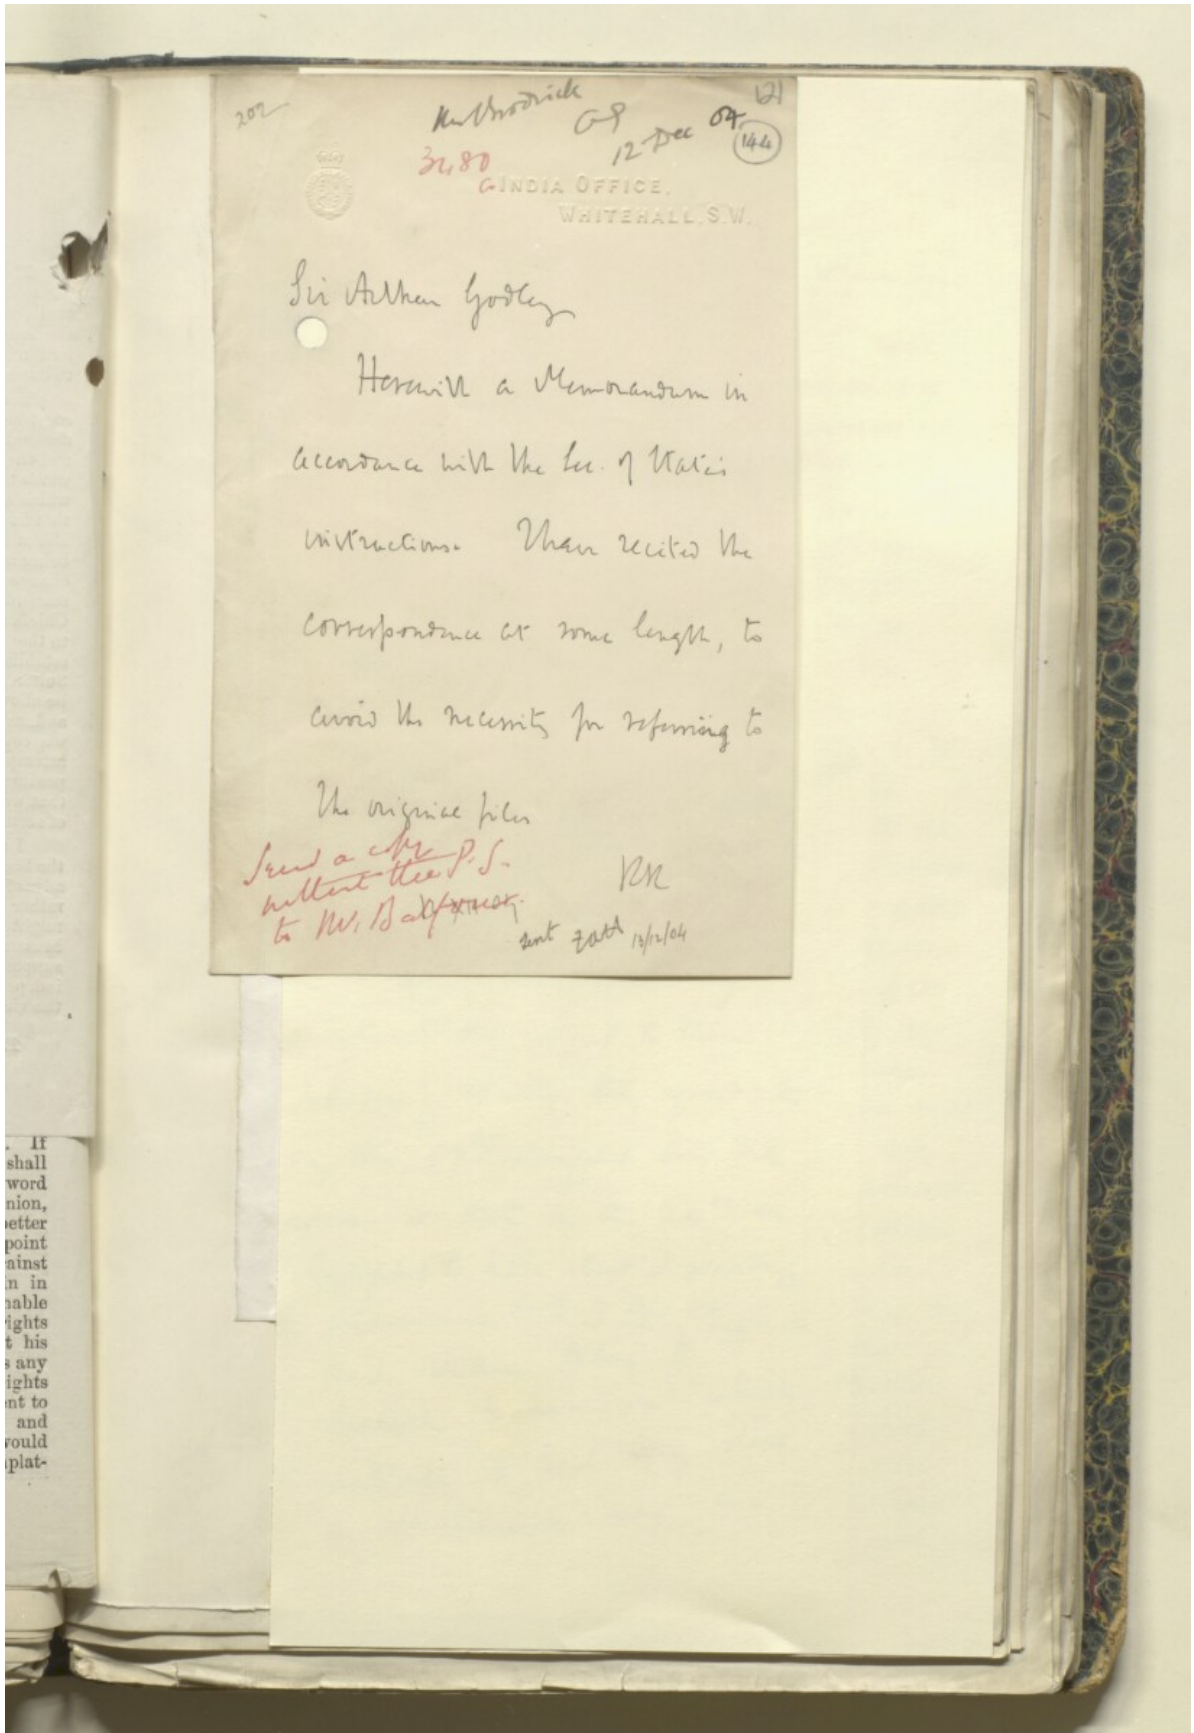 202
Mr Brodrick
121
AG
12 Dec 04
144
3480
INDIA OFFICE,
WHITEHALL, S.W.
Sir Arthur Godley
Herewith a Memorandum in
accordance with the Sec. of State's
instructions. I have recited the
correspondence at some length, to
avoid the necessity for referring to
the original files
RR
Send a copy
without the P.S.
to Mr. Balfour.
sent 13/12/04
. If
shall
word
nion,
etter
point
ainst
n in
nable
ights
t his
s any
ights
ent to
and
ould
plat-